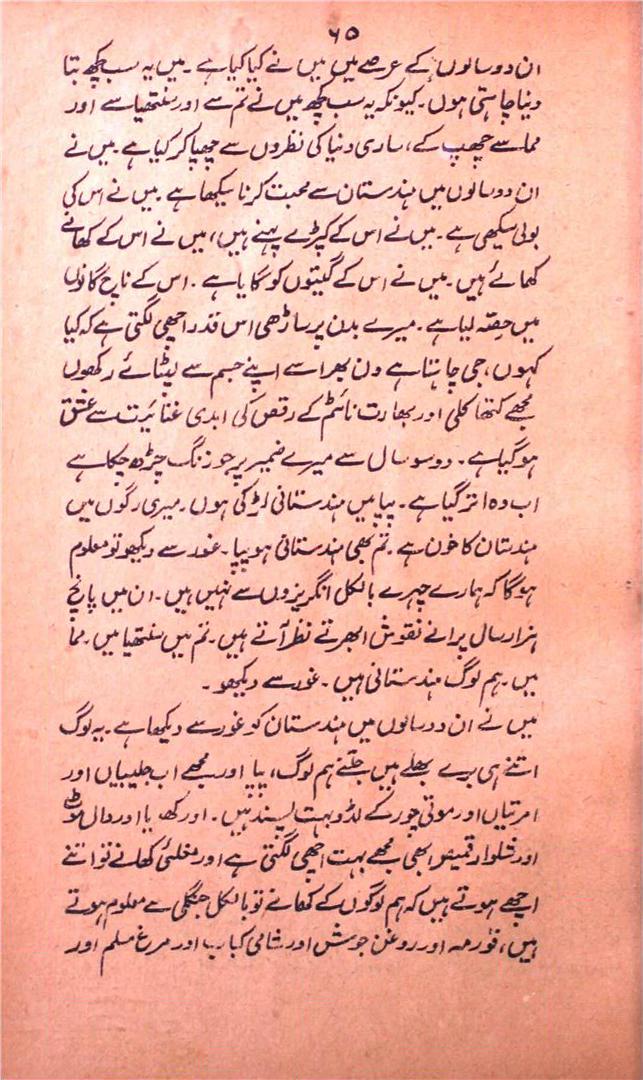 ۶۵
ان دو سالوں کے عرصے میں میں نے کیا کیا ہے ۔ میں یہ سب کچھ بتا
دینا چاہتی ہوں ۔ کیونکہ یہ سب کچھ میں نے تم سے اور سنتھیا سے اور
مما سے چھپ کے، ساری دنیا کی نظروں سے چھپا کر کیا ہے ۔ میں نے
ان دو سالوں میں ہندستان سے محبت کرنا سیکھا ہے ۔ میں نے اس کی
بولی سیکھی ہے ۔ میں نے اس کے کپڑے پہنے ہیں، میں نے اس کے کھانے
کھائے ہیں ۔ میں نے اس کے گیتوں کو گایا ہے ۔ اس کے ناچ گانوں
میں حصّہ لیا ہے ۔ میرے بدن پر ساڑھی اس قدر اچھی لگتی ہے کہ کیا
کہوں، جی چاہتا ہے دن بھر اسے اپنے جسم سے لپٹائے رکھوں
مجھے کتھا کلی اور بھارت ناٹم کے رقص کی ابدی غنائیت سے عشق
ہو گیا ہے ۔ دو سو سال سے میرے ضمیر پر جو زنگ چڑھ چکا ہے
اب وہ اتر گیا ہے ۔ پپا میں ہندستانی لڑکی ہوں ۔ میری رگوں میں
ہندستان کا خون ہے ۔ تم بھی ہندستانی ہو پپا ۔ غور سے دیکھو تو معلوم
ہوگا کہ ہمارے چہرے بالکل انگریزوں سے نہیں ہیں ۔ ان میں پانچ
ہزار سال پرانے نقوش ابھرتے نظر آتے ہیں ۔ تم میں سنتھیا میں ۔ مما
میں ۔ ہم لوگ ہندستانی ہیں ۔ غور سے دیکھو ۔
میں نے ان دو سالوں میں ہندستان کو غور سے دیکھا ہے ۔ یہ لوگ
اتنے ہی برے بھلے ہیں جتنے ہم لوگ، پپا اور مجھے اب جلیبیاں اور
امرتیاں اور موتی چور کے لڈو بہت پسند ہیں ۔ اور کھ یا اور دال موٹھ
اور شلوار قمیض ابھی مجھے بہت اچھی لگتی ہے اور مغلئی کھانے تو اتنے
اچھے ہوتے ہیں کہ ہم لوگوں کے کھانے تو بالکل جنگلی سے معلوم ہوتے
ہیں، قورمہ اور روغن جوش اور شامی کباب اور مرغ مسلم اور